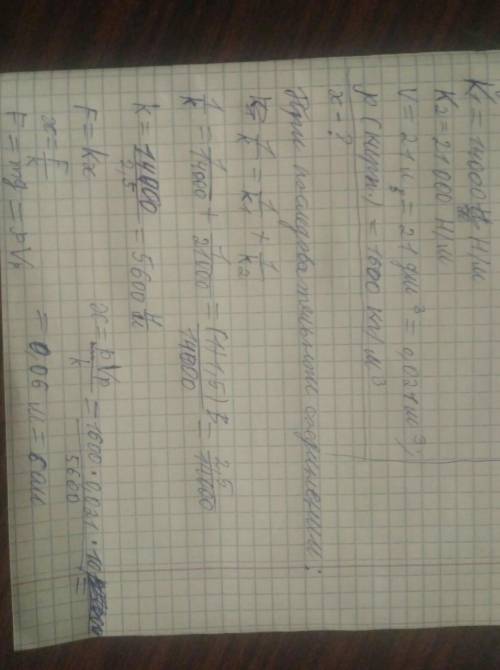 K₁ = 14000 Н/м
K₂ = 21000 Н/м
V = 21 л = 21 дм³ = 0,021 м³;
ρ (кирп.) = 1600 кг/м³
x - ?
При последовательном соединении:
1/k = 1/k₁ + 1/k₂
1/k = 1/14000 + 1/21000 = = 2,5/14000
k = 14000/2,5 = 5600 Н/м
F = kx
x = F/k
F = mg = ρVg
x = ρVg/k = 1600·0,021·10/5600 =
= 0,06 м = 6 см